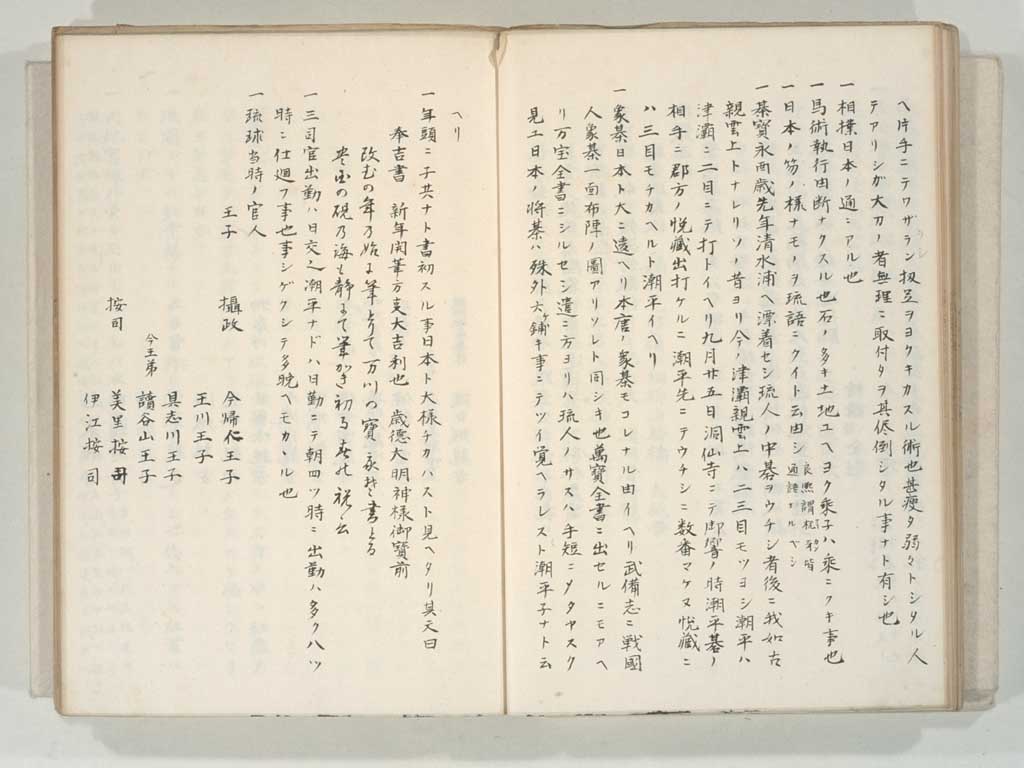 ヘ片手ニテワザラン扱至ヲヨクキカスル術也甚痩タ弱々トシタル人
テアリシガ大刀ノ者無理ニ取付タヲ其侭倒シタル事ナト有シ也
一相撲日本ノ通ニアル也
一馬術執行由断ナクスル也石ノ多キ土地ユヘヨク乗子ハ乗ニクキ事也
一日本ノ笏ノ様ナモノヲ琉語ニクイト云由シ
一碁寳永両歳先年清水浦ヘ漂着セシ琉人ノ中碁ヲウチシ者後ニ我如古
親雲上トナレリソノ昔ヨリ今ノ津灞親雲上ハ二三目モツヨシ潮平ハ
津灞ニ二目ニテ打トイヘリ九月廿五日洞仙寺ニテ御響ノ時潮平碁ノ
相手ニ郡方ノ悦藏出打ケルニ潮平先ニテウチシニ数番マケヌ悦藏ニ
ハ三目モチカヘルト潮平イヘリ
一象碁日本ト大ニ違ヘリ本唐ノ象碁モコレナル由イヘリ武備志ニ戦國
人象碁一面布陣ノ圖アリソレト同シキ也萬寳全書ニ出セルニモアヘ
リ万宝全書ニシルセシ遣ニ方ヨリハ琉人ノサスハ手短ニタヤスク
見エ日本ノ将碁ハ殊外六ケ鋪キ事ニテツイ覚ヘラレスト潮平子ナト云
ヘリ
一年頭ニ子共ナト書初スル事日本ト大様チカハスト見ヘタリ其文曰
奉吉書　新年開筆方支大吉利也　歳徳大明神様御寳前
改むの年乃始に筆とりて万川の寳永そ書とる
硯乃海も静にて筆かき初る
一三司官出勤ハ日交之潮平ナドハ日勤ニテ朝四ツ時ニ出勤ハ多ク八ツ
時ニ仕廻フ事也事シゲクシテ多晩ヘモカヽル也
一琉球当時ノ官人
王子　攝政　今帰仁王子
王川王子
具志川王子
今王弟　讀谷山王子
按司　美里按司
伊江按司